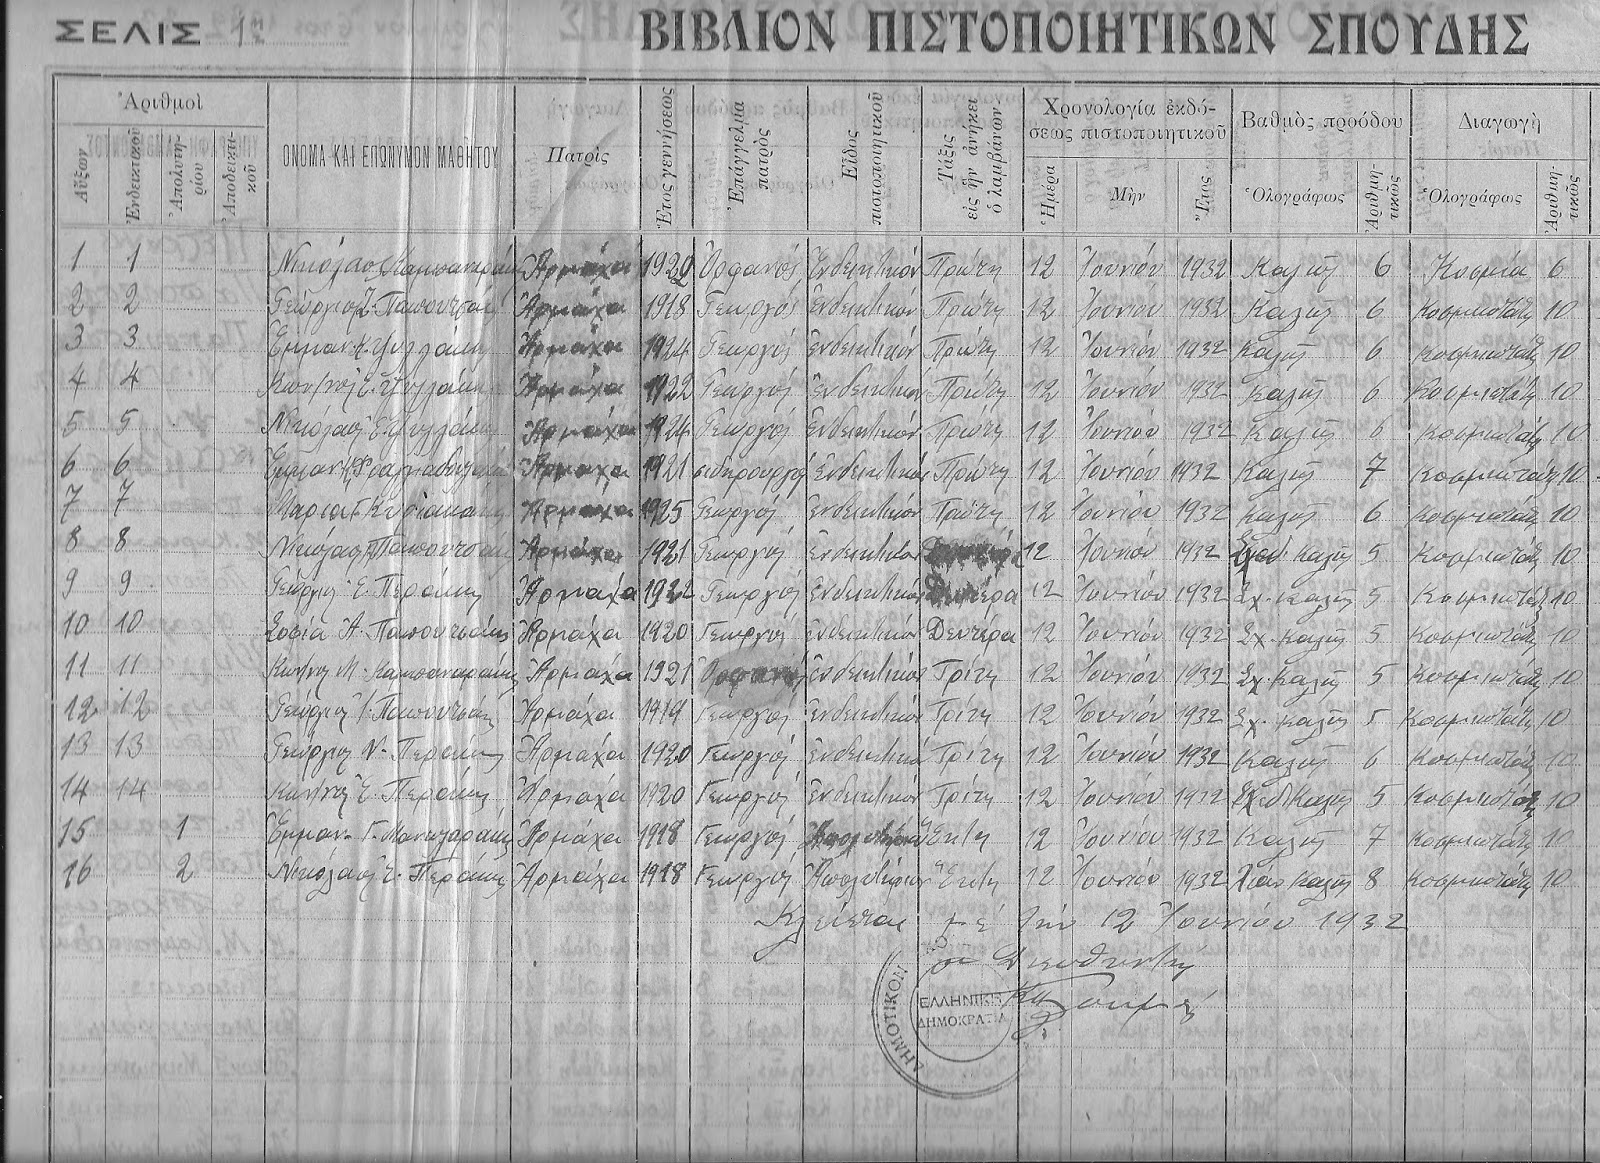 ΣΕΛΙΣ 1η ΒΙΒΛΙΟΝ ΠΙΣΤΟΠΟΙΗΤΙΚΩΝ ΣΠΟΥΔΗΣ
Ἀριθμοὶ
Αὔξων Ἐνδεικτικοῦ Ἀπολυτηρίου Ἀποδεικτικοῦ ΟΝΟΜΑ ΚΑΙ ΕΠΩΝΥΜΟΝ ΜΑΘΗΤΟΥ Πατρὶς Ἔτος γεννήσεως Ἐπάγγελμα πατρὸς Εἶδος πιστοποιητικοῦ Τάξις εἰς ἣν ἀνήκει ὁ λαμβάνων Χρονολογία ἐκδόσεως πιστοποιητικοῦ Βαθμὸς προόδου Διαγωγὴ
Ἡμέρα Μὴν Ἔτος Ὁλογράφως Ἀριθμητικῶς Ὁλογράφως Ἀριθμητικῶς
1 1 Νικόλαος Καμπαναράκης Ἀρμάχα 1922 Ὀρφανός Ἐνδεικτικόν Πρώτη 12 Ἰουνίου 1932 Καλῶς 6 Κοσμία 6
2 2 Γεώργιος Παπουτσάκης Ἀρμάχα 1918 Γεωργός Ἐνδεικτικόν Πρώτη 12 Ἰουνίου 1932 Καλῶς 6 Κοσμιωτάτη 10
3 3 Ἐμμαν. Ψυλλάκης Ἀρμάχα 1924 Γεωργός Ἐνδεικτικόν Πρώτη 12 Ἰουνίου 1932 Καλῶς 6 Κοσμιωτάτη 10
4 4 Κων/νος Ε. Ψυλλάκης Ἀρμάχα 1922 Γεωργός Ἐνδεικτικόν Πρώτη 12 Ἰουνίου 1932 Καλῶς 6 Κοσμιωτάτη 10
5 5 Νικόλαος Ε. Ψυλλάκης Ἀρμάχα 1924 Γεωργός Ἐνδεικτικόν Πρώτη 12 Ἰουνίου 1932 Καλῶς 6 Κοσμιωτάτη 10
6 6 Ἐμμαν. Φραγκιαδουλάκης Ἀρμάχα 1921 σιδηρουργός Ἐνδεικτικόν Πρώτη 12 Ἰουνίου 1932 Καλῶς 7 Κοσμιωτάτη 10
7 7 Μαρία Γ. Κυριακάκη Ἀρμάχα 1925 Γεωργός Ἐνδεικτικόν Πρώτη 12 Ἰουνίου 1932 Καλῶς 6 Κοσμιωτάτη 10
8 8 Νικόλαος Παπουτσάκης Ἀρμάχα 1921 Γεωργός Ἐνδεικτικόν Δευτέρα 12 Ἰουνίου 1932 Σχεδ. Καλῶς 5 Κοσμιωτάτη 10
9 9 Γεώργιος Ε. Περάκης Ἀρμάχα 1922 Γεωργός Ἐνδεικτικόν Δευτέρα 12 Ἰουνίου 1932 Σχ. Καλῶς 5 Κοσμιωτάτη 10
10 10 Σοφία Ἀ. Παπουτσάκη Ἀρμάχα 1920 Γεωργός Ἐνδεικτικόν Δευτέρα 12 Ἰουνίου 1932 Σχ. Καλῶς 5 Κοσμιωτάτη 10
11 11 Κων/νος Μ. Καμπαναράκης Ἀρμάχα 1921 Ὀρφανός Ἐνδεικτικόν Τρίτη 12 Ἰουνίου 1932 Σχ. Καλῶς 5 Κοσμιωτάτη 10
12 12 Γεώργιος Ἰ. Παπουτσάκης Ἀρμάχα 1919 Γεωργός Ἐνδεικτικόν Τρίτη 12 Ἰουνίου 1932 Σχ. Καλῶς 5 Κοσμιωτάτη 10
13 13 Γεώργιος Ν. Περάκης Ἀρμάχα 1920 Γεωργός Ἐνδεικτικόν Τρίτη 12 Ἰουνίου 1932 Καλῶς 6 Κοσμιωτάτη 10
14 14 Κων/νος Ε. Περάκης Ἀρμάχα 1920 Γεωργός Ἐνδεικτικόν Τρίτη 12 Ἰουνίου 1932 Σχεδ. Καλῶς 5 Κοσμιωτάτη 10
15 1 Ἐμμαν. Γ. Ἀρμάχα 1918 Γεωργός Ἀπολυτήριον Ἕκτη 12 Ἰουνίου 1932 Καλῶς 7 Κοσμιωτάτη 10
16 2 Νικόλαος Ε. Περάκης Ἀρμάχα 1918 Γεωργός Ἀπολυτήριον Ἕκτη 12 Ἰουνίου 1932 Λίαν Καλῶς 8 Κοσμιωτάτη 10
Κλείεται μέ τήν 12 Ἰουνίου 1932
ὁ Διευθυντής
ΔΗΜΟΤΙΚΟΝ
ΕΛΛΗΝΙΚΗ
ΔΗΜΟΚΡΑΤΙΑ